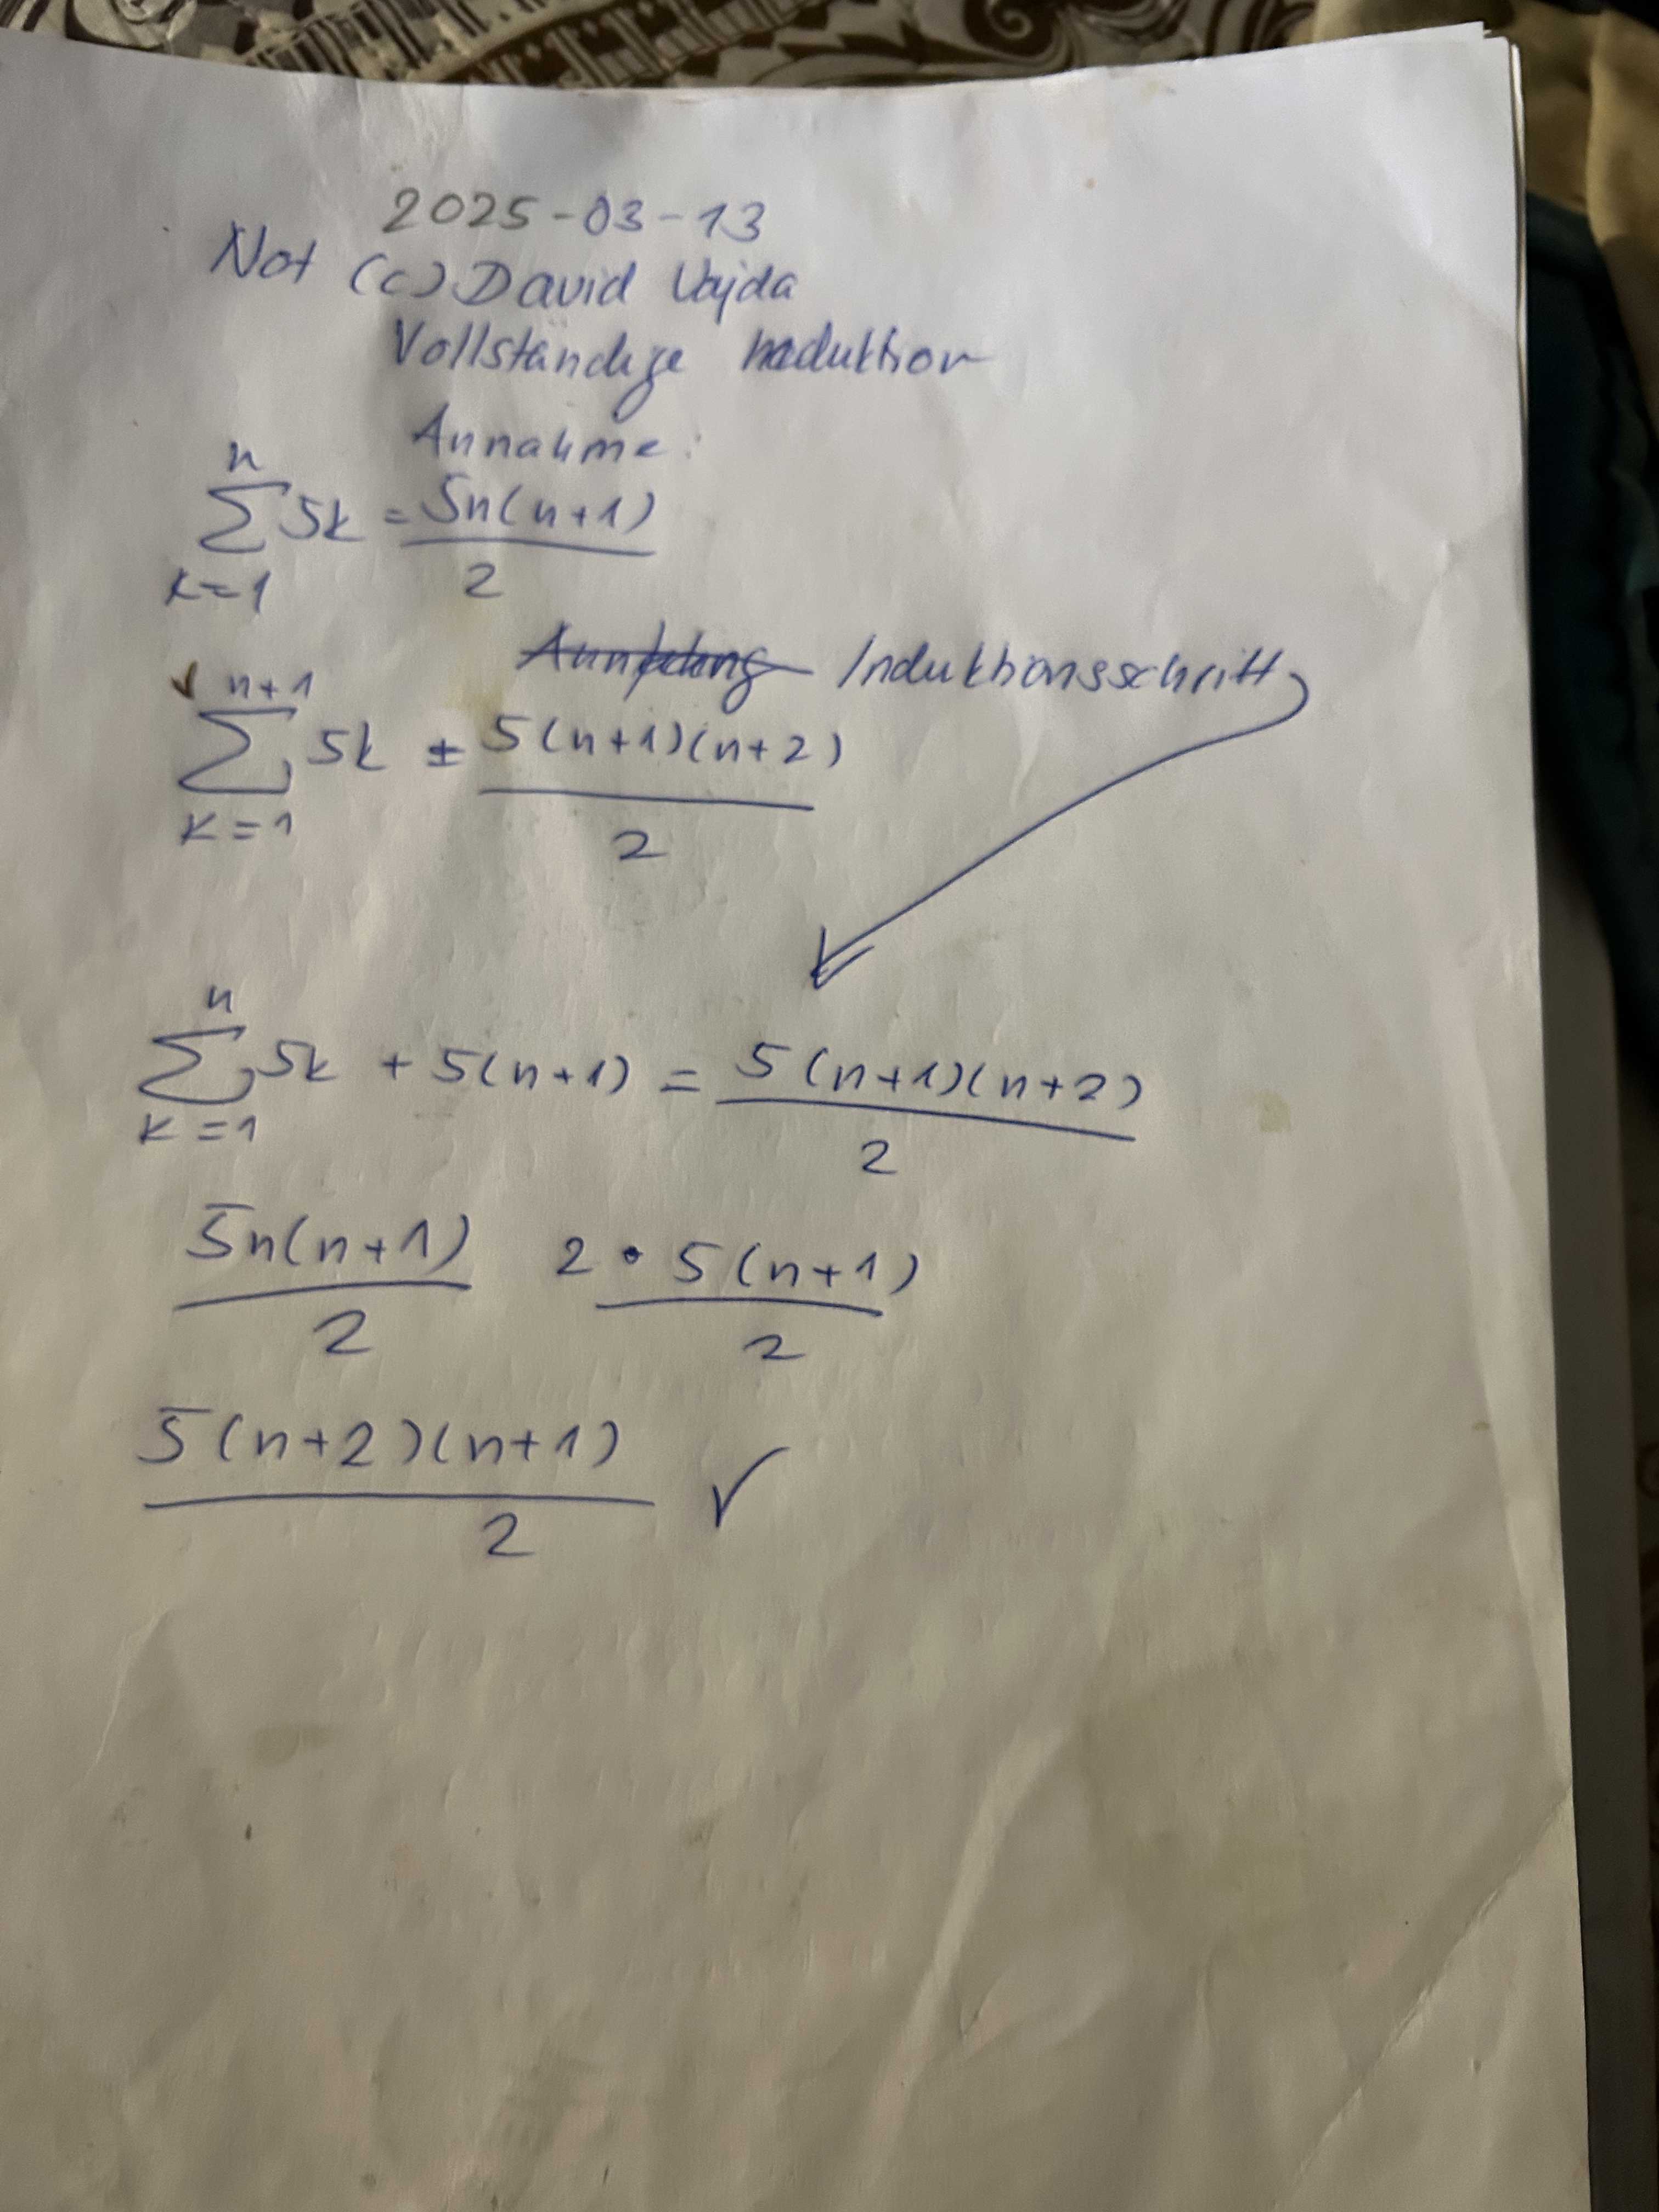 2025-03-13
Not (c) David Vajda
Vollständige Induktion
Annahme:
n
∑ 5k = 5n(n+1)
k=1 2
Induktionsschritt
n+1
∑ 5k = 5(n+1)(n+2)
k=1 2
n
∑ 5k + 5(n+1) = 5(n+1)(n+2)
k=1 2
5n(n+1) 2 · 5(n+1)
2 2
5(n+2)(n+1) ✓
2